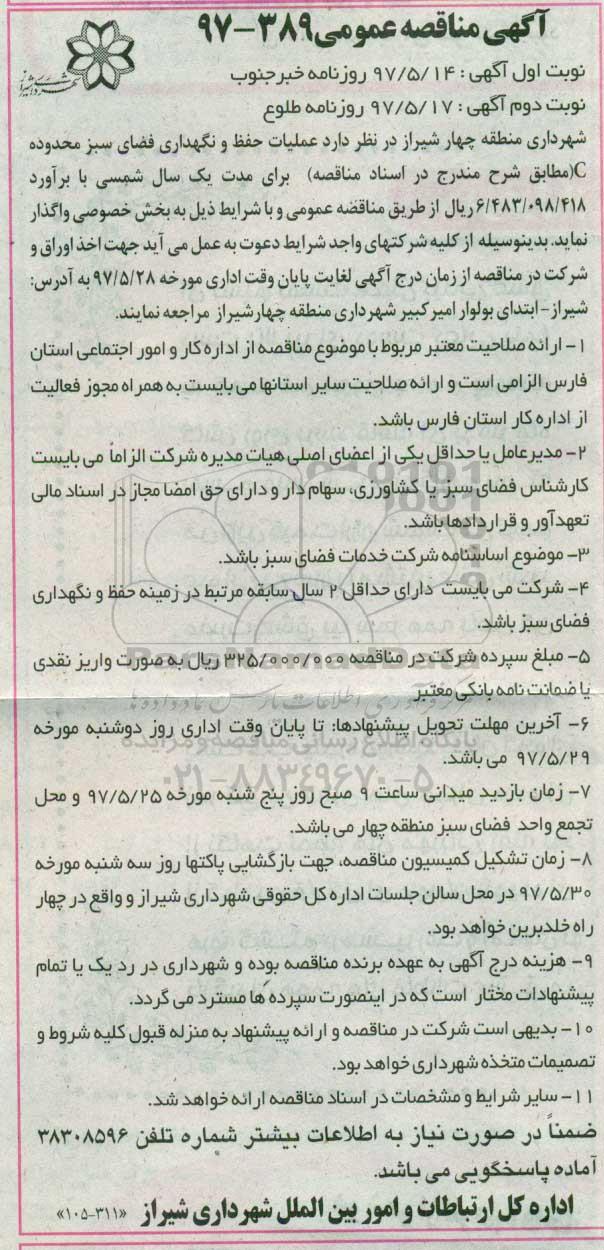 آگهی مناقصه عمومی ۳۸۹-۹۷
نوبت اول آگهی: ۹۷/۵/۱۴ روزنامه خبرجنوب
نوبت دوم آگهی: ۹۷/۵/۱۷ روزنامه طلوع
شهرداری منطقه چهار شیراز در نظر دارد عملیات حفظ و نگهداری فضای سبز محدوده
C(مطابق شرح مندرج در اسناد مناقصه) برای مدت یک سال شمسی با برآورد
۶/۴۸۳/۰۹۸/۴۱۸ ریال از طریق مناقضه عمومی و با شرایط ذیل به بخش خصوصی واگذار
نماید. بدینوسیله از کلیه شرکتهای واجد شرایط دعوت به عمل می آید جهت اخذ اوراق و
شرکت در مناقصه از زمان درج آگهی لغایت پایان وقت اداری مورخه ۹۷/۵/۲۸ به آدرس:
شیراز- ابتدای بولوار امیرکبیر شهرداری منطقه چهارشیراز مراجعه نمایند.
۱- ارائه صلاحیت معتبر مربوط با موضوع مناقصه از اداره کار و امور اجتماعی استان
فارس الزامی است و ارائه صلاحیت سایر استانها می بایست به همراه مجوز فعالیت
از اداره کار استان فارس باشد.
۲- مدیرعامل یا حداقل یکی از اعضای اصلی هیات مدیره شرکت الزاماً می بایست
کارشناس فضای سبز یا کشاورزی، سهام دار و دارای حق امضا مجاز در اسناد مالی
تعهدآور و قراردادها باشد.
۳- موضوع اساسنامه شرکت خدمات فضای سبز باشد.
۴- شرکت می بایست دارای حداقل ۲ سال سابقه مرتبط در زمینه حفظ و نگهداری
فضای سبز باشد.
۵- مبلغ سپرده شرکت در مناقصه ۳۲۵/۰۰۰/۰۰۰ ریال به صورت واریز نقدی
یا ضمانت نامه بانکی معتبر
۶- آخرین مهلت تحویل پیشنهادها: تا پایان وقت اداری روز دوشنبه مورخه
۹۷/۵/۲۹ می باشد.
۷- زمان بازدید میدانی ساعت ۹ صبح روز پنج شنبه مورخه ۹۷/۵/۲۵ و محل
تجمع واحد فضای سبز منطقه چهار می باشد.
۸- زمان تشکیل کمیسیون مناقصه، جهت بازگشایی پاکتها روز سه شنبه مورخه
۹۷/۵/۳۰ در محل سالن جلسات اداره کل حقوقی شهرداری شیراز و واقع در چهار
راه خلدبرین خواهد بود.
۹- هزینه درج آگهی به عهده برنده مناقصه بوده و شهرداری در رد یک یا تمام
پیشنهادات مختار است که در اینصورت سپرده ها مسترد می گردد.
۱۰- بدیهی است شرکت در مناقصه و ارائه پیشنهاد به منزله قبول کلیه شروط و
تصمیمات متخذه شهرداری خواهد بود.
۱۱- سایر شرایط و مشخصات در اسناد مناقصه ارائه خواهد شد.
ضمناً در صورت نیاز به اطلاعات بیشتر شماره تلفن ۳۸۳۰۸۵۹۶
آماده پاسخگویی می باشد.
اداره کل ارتباطات و امور بین الملل شهرداری شیراز «۳۱۱-۱۰۵»
ParsNamadData
پایگاه اطلاع رسانی مناقصه و مزایده
۰۲۱-۸۸۳۴۹۶۷۰-۵